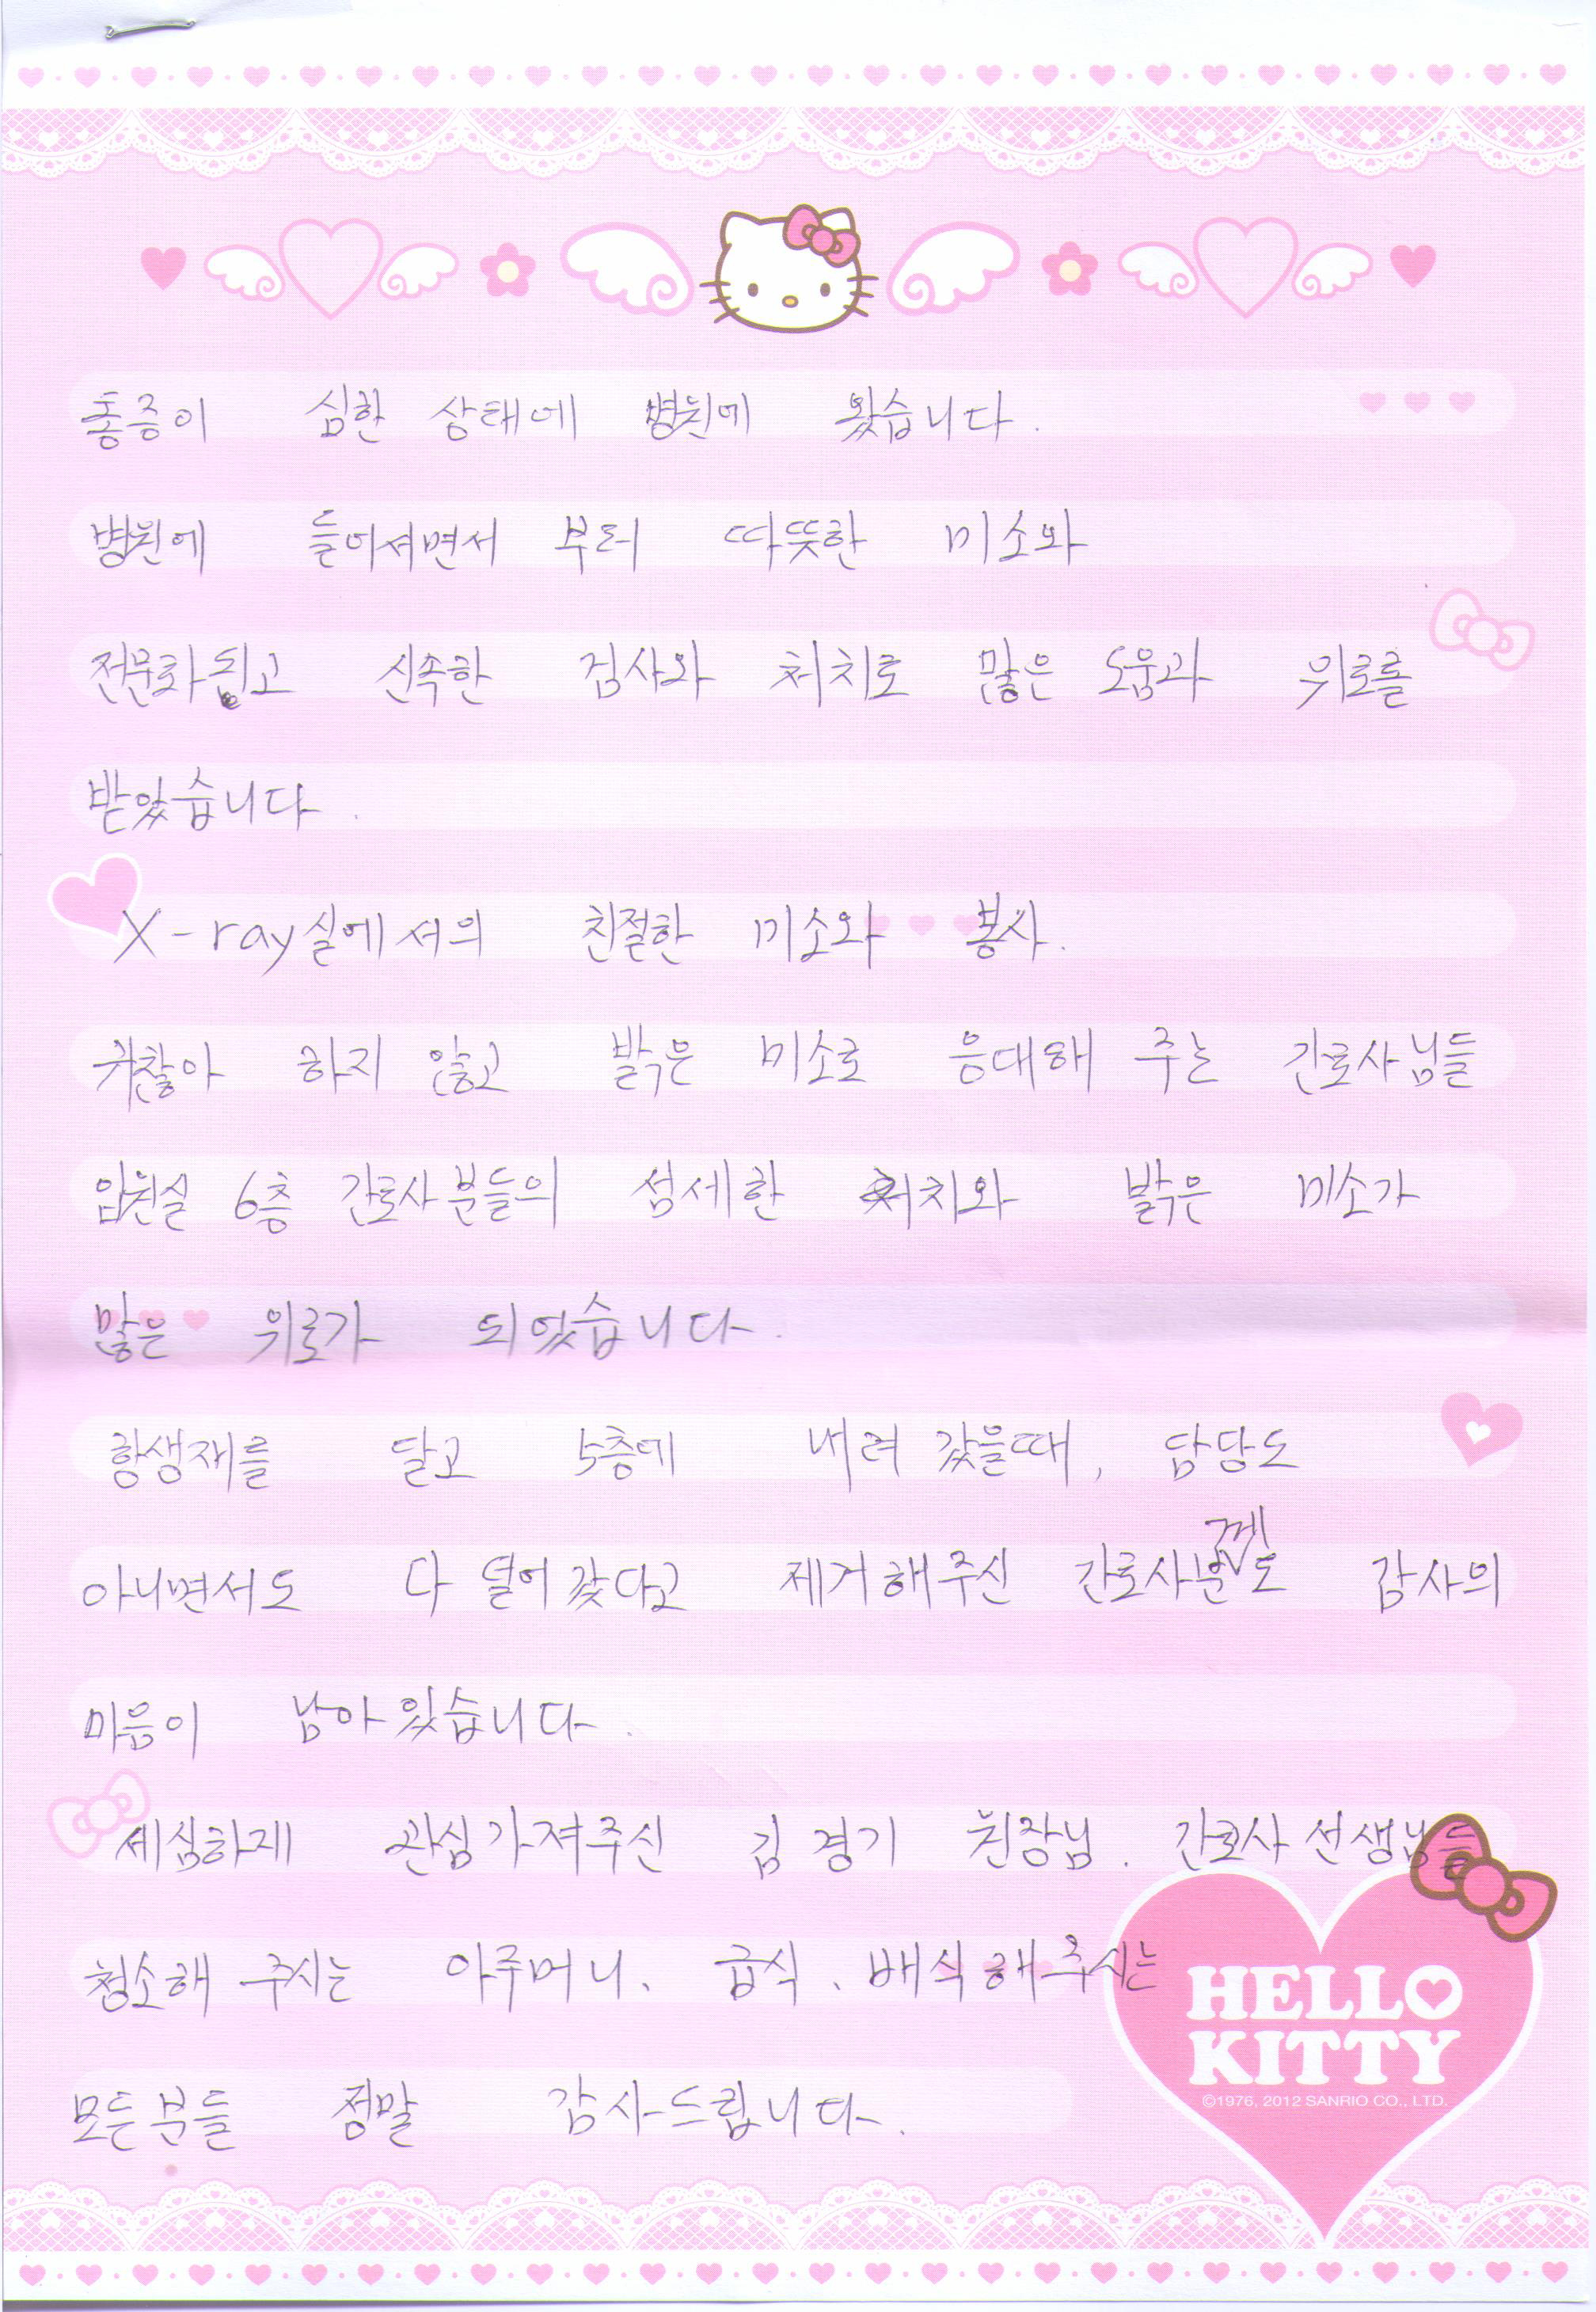 통증이 심한 상태에 병원에 왔습니다.
병원에 들어서면서 부터 따뜻한 미소와
전문화되고 신속한 검사와 처치로 많은 도움과 위로를
받았습니다.
X-ray실에서의 친절한 미소와 봉사.
귀찮아 하지 않고 밝은 미소로 응대해 주는 간호사님들
입원실 6층 간호사분들의 섬세한 처치와 밝은 미소가
많은 위로가 되었습니다.
항생재를 달고 5층에 내려 갔을때, 담당도
아니면서도 다 덜어 갔다고 제거해주신 간호사분께도 감사의
마음이 남아있습니다.
세심하게 관심가져주신 김경기 원장님. 간호사 선생님들
청소해 주시는 아주머니. 급식. 배식해주시는
모든분들 정말 감사드립니다.
HELLO
KITTY
©1976, 2012 SANRIO CO., LTD.